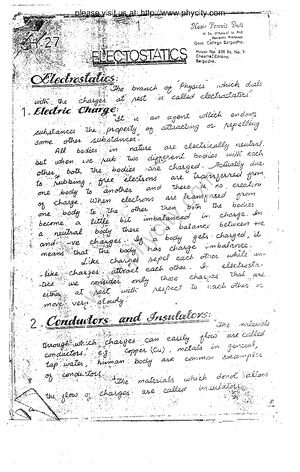 please visit us at: http://www.phycity.com
CH 27
ELECTOSTATICS
M.Sc. (Physics) M. Phil
Govt. College Sargodha.
House No. 335 St. No. 2
Sargodha.
Electrostatics:
The branch of Physics which deals
with the charges at rest is called electrostatics.
1. Electric Charge:
It is an agent which endows
substances the property of attracting or repelling
some other substances.
All bodies in nature are electrically neutral.
but when we rub two different bodies with each
other, both the bodies are charged. Actually due
to rubbing, free electrons are transferred from
one body to another and there is no creation
of charge. When electrons are transferred from
one body to the other then both the bodies
become a little bit imbalanced in charge. In
a neutral body there is a balance between +ve
and -ve charges. If a body gets charged, it
means that the body has charge imbalance.
Like charges repel each other while un-
like charges attract each other. In electrosta-
tics we consider only those charges that are
either at rest with respect to each other or
move very slowly.
2. Conductors and Insulators:
The materials
through which charges can easily flow are called
conductors. e.g. copper (Cu), metals in general,
tap water, human body are common examples
of conductors.
The materials which donot allow
the flow of charges are called insulators.